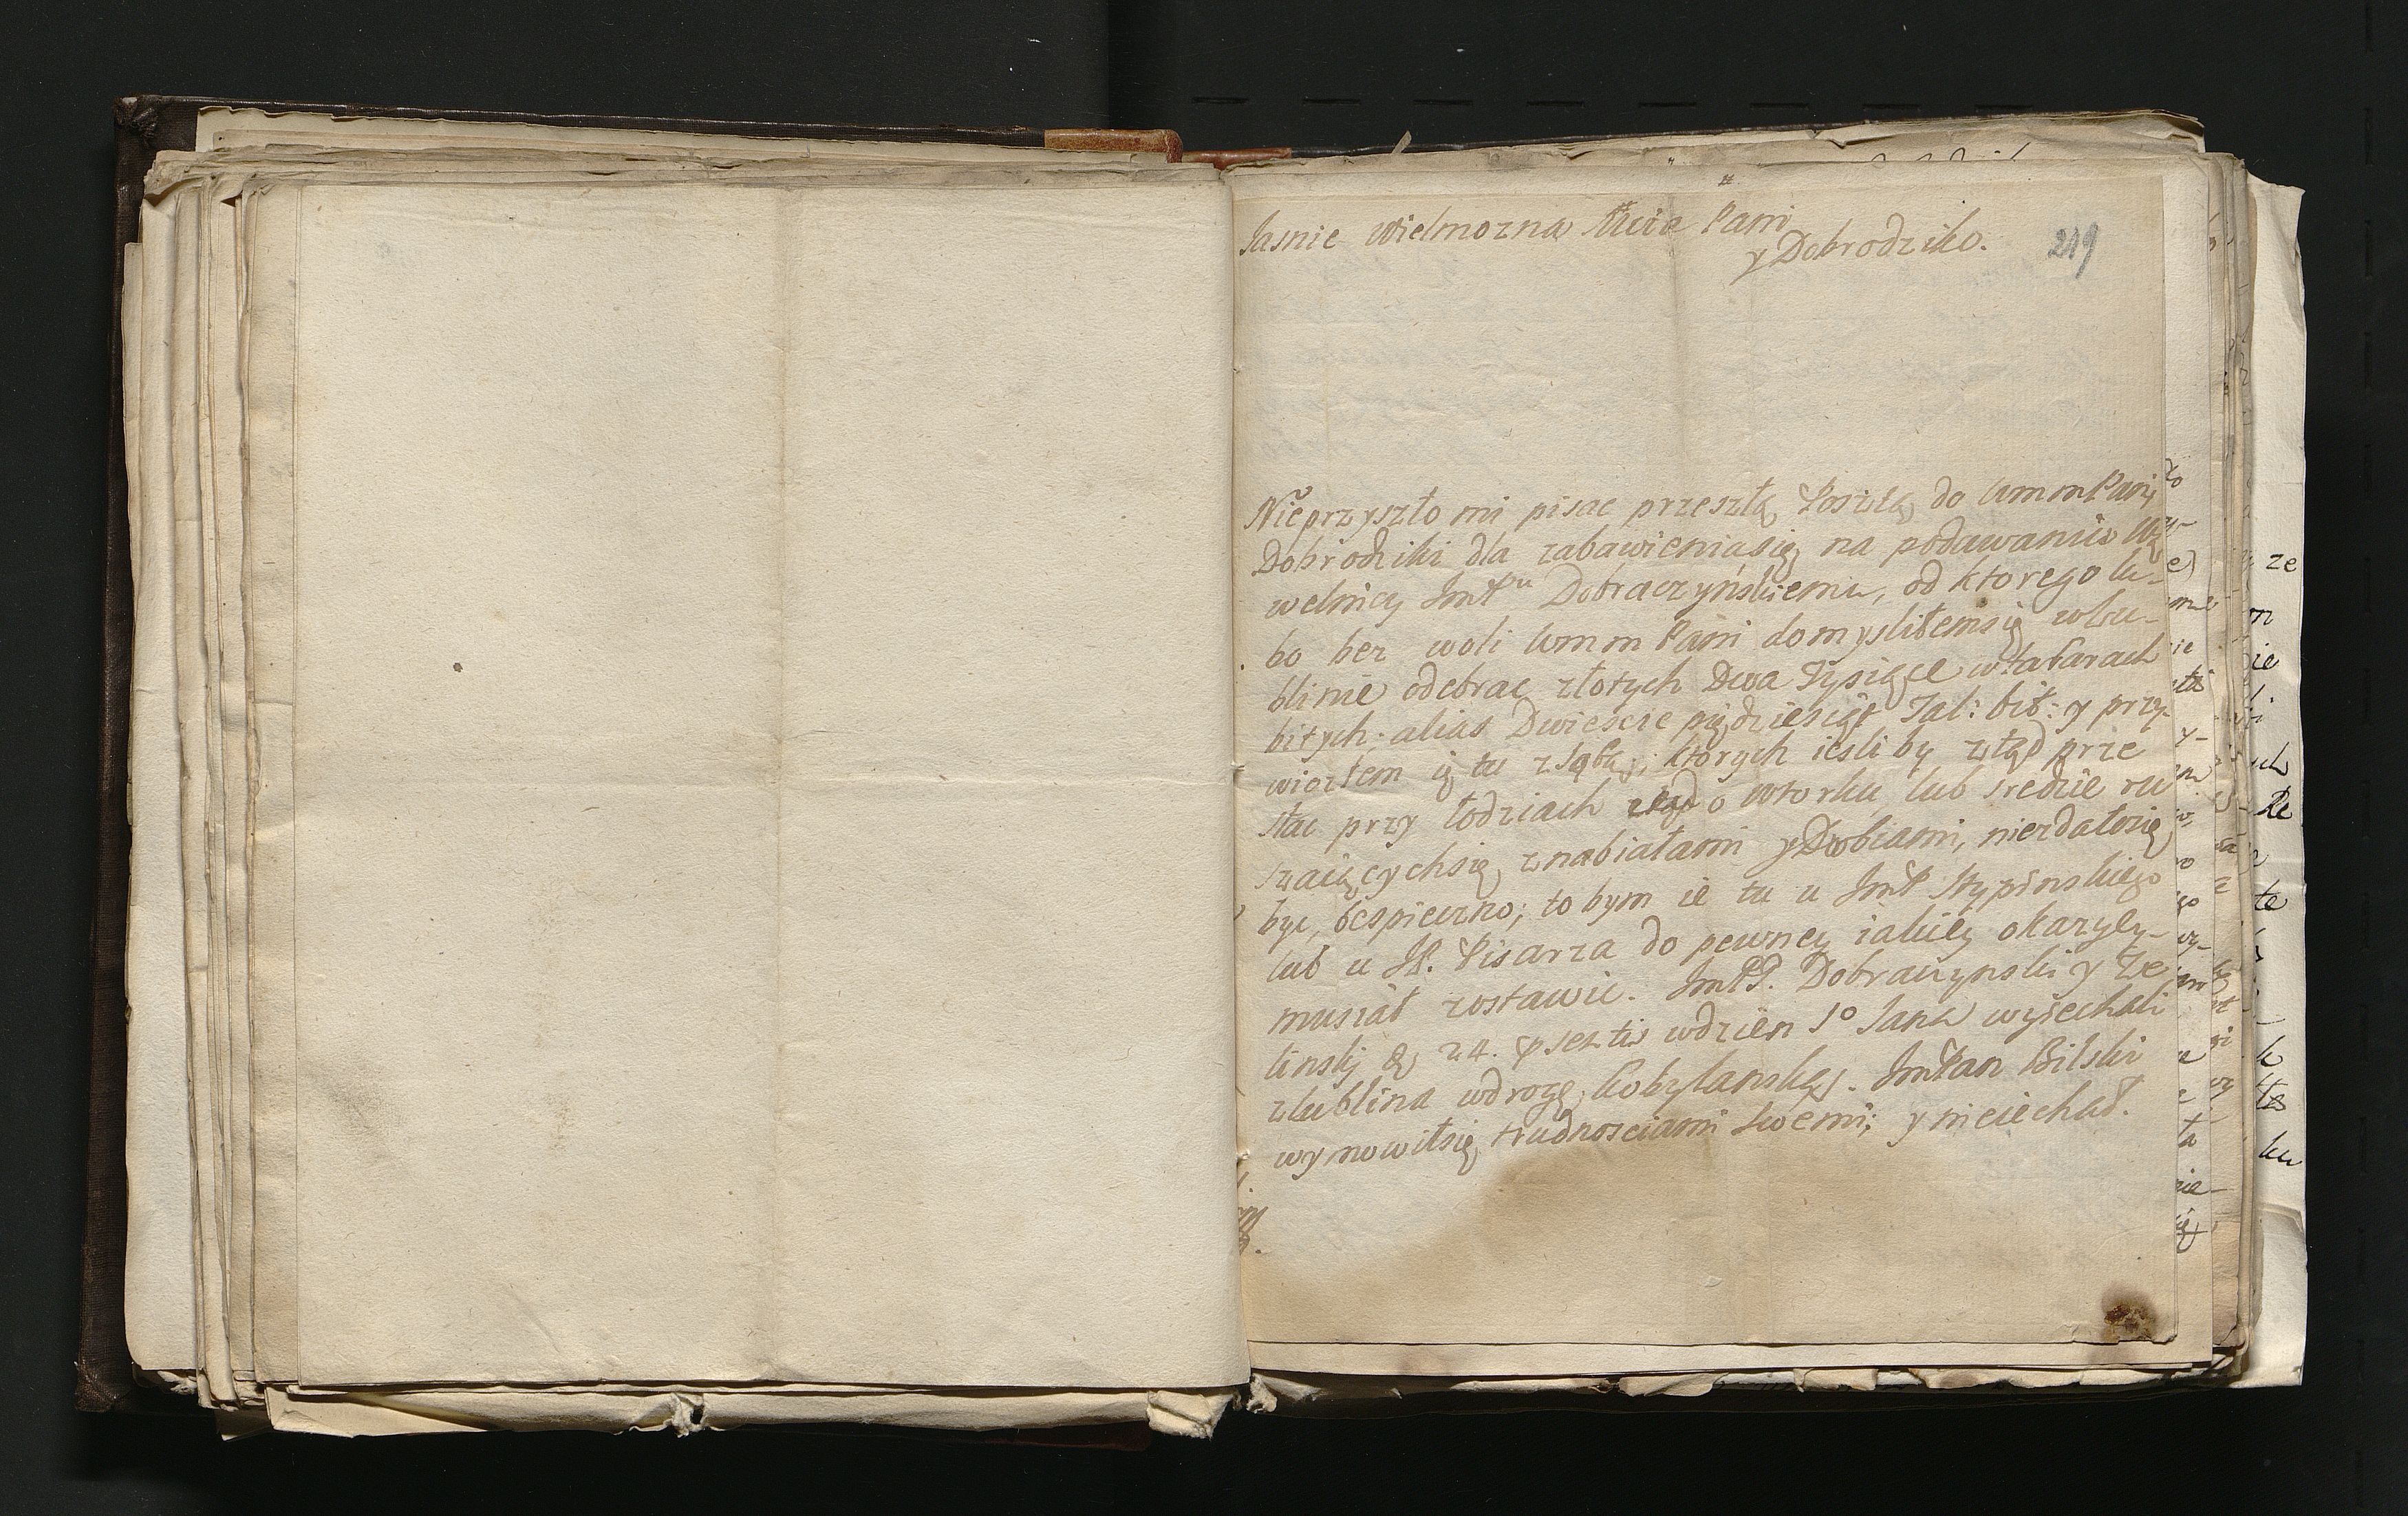 Jasnie Wielmozna Mcia Pani
y Dobrodziko.
249
Nie przyszło mi pisac przeszłą Posztą do Wmm Pani
Dobrodziki dla zabawieniasię na podawaniu
welnicy JmPu Dobraczyńskiemu, od ktorego lu-
bo bez woli Wmm Pani domysliłemsię wlu-
blinie odebrac złotych Dwa Tysiące wtalarach
bitych; alias Dwiescie piędziesiąt Tal: bit: y przy-
wiozłem ię tu zsobą; ktorych iesliby ztąd prze
słac przy łodziach o wtorku lub sredzie ru
szaiącychsię, znabiałami y Drobiami, niezdałosię
byc, bespieczno; to bym ie tu u JmP Stypinskiego
lub u JP. Pisarza do pewney iakiey okazyey-
musiał zostawic. JmPP. Dobraczynski y Ze
linskj D 24. psentis wdzien So Jana wyiechali
zlublina wdrogę Kobylanską. JmPan Bilski
wymowiłsię trudnosciami swemi; y nieiechał.